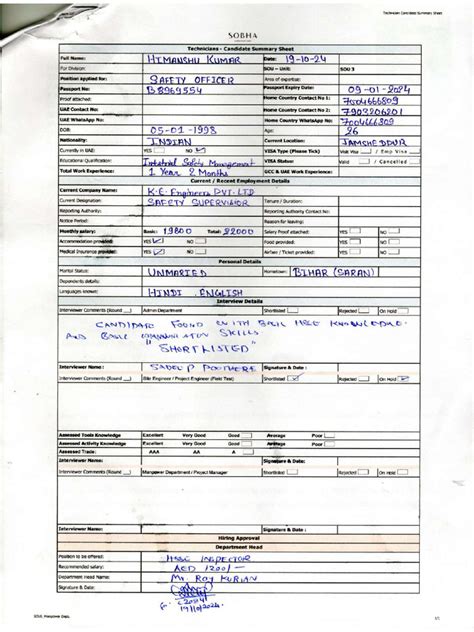 Technicians Candidate Summary Sheet
SOBHA
Technicians - Candidate Summary Sheet
Full Name: HIMANSHU KUMAR Date: 19-10-24
For Division: SOU - UAE: SOU 3
Position applied for: SAFETY OFFICER Area of expertise:
Passport No: B8969554 Passport Expiry Date: 09-01-2034
Proof attached: Home Country Contact No 1: 7004666809
UAE Contact No: Home Country Contact No 2: 7903206201
UAE WhatsApp No: Home Country WhatsApp No: 7004666809
DOB: 05-01-1998 Age: 26
Nationality: INDIAN Current Location: JAMSHEDPUR
Currently in UAE: YES NO VISA Type (Please Tick) Visit Visa / Emp Visa
Educational Qualification: Industrial Safety Management VISA Status Valid / Cancelled
Total Work Experience: 1 Year 2 Months GCC & UAE Work Experience:
Current / Recent Employment Details
Current Company Name: K.E. Engineers PVT. LTD
Current Designation: SAFETY SUPERVISOR Tenure / Duration:
Reporting Authority: Reporting Authority Contact No:
Notice Period: Reason for Leaving:
Monthly salary: Basic: 19800 Total: 22000 Salary Proof attached: YES NO
Accommodation provided: YES NO Food provided: YES NO
Medical Insurance provided: YES NO Airfare / Ticket provided: YES NO
Personal Details
Marital Status: UNMARIED Hometown: BIHAR (SARAN)
Dependents details:
Languages known: HINDI, ENGLISH
Interview Details
Interviewer Comments (Round ) Admin Department Shortlisted Rejected On Hold
CANDIDATE FOUND WITH BASIC HSE KNOWLEDGE.
AND BASIC COMMUNICATION SKILLS
"SHORTLISTED"
Interviewer Name: Signature & Date:
Interviewer Comments (Round ) Site Engineer / Project Engineer (Field Test) Shortlisted Rejected On Hold
Assessed Tools Knowledge Excellent Very Good Good Average Poor
Assessed Activity Knowledge Excellent Very Good Good Average Poor
Assessed Trade: AAA AA A
Interviewer Comments (Round ) Manpower Department / Project Manager Shortlisted Rejected On Hold
Interviewer Name: Signature & Date:
Hiring Approval
Department Head
Position to be offered: HSE INSPECTOR
Recommended salary: AED 1200/-
Department Head Name: Mr. Roy KURIAN
Signature & Date:
19/10/2024
SOUL Manpower Dept. 1/1